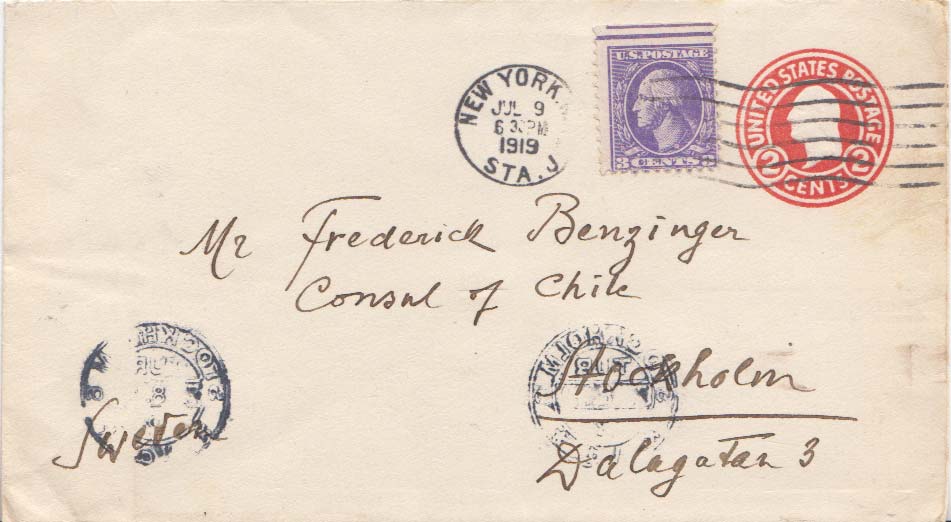 U.S. POSTAGE
3 CENTS 3
UNITED STATES POSTAGE
2 CENTS 2
NEW YORK
JUL 9
6 30 PM
1919
STA. J
Mr Frederick Benzinger
Consul of Chile
Stockholm
Dalagatan 3
Sweden
STOCKHOLM
STOCKHOLM